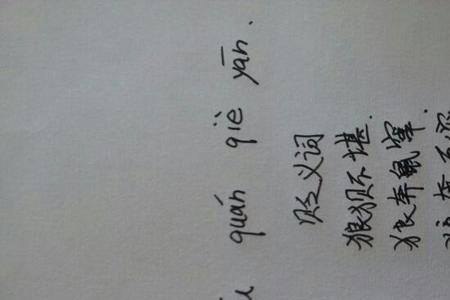 quán qiè yān.
贬义词
狼狈不堪.
狼奔鼠窜.